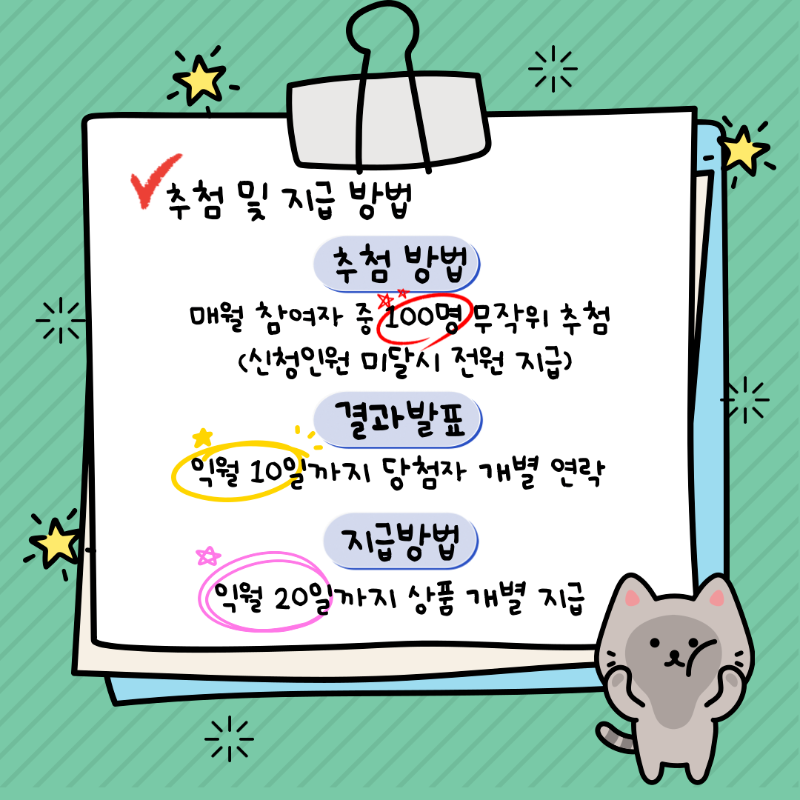 추첨 및 지급 방법
추첨 방법
매월 참여자 중 100명 무작위 추첨
(신청인원 미달시 전원 지급)
결과발표
익월 10일까지 당첨자 개별 연락
지급방법
익월 20일까지 상품 개별 지급